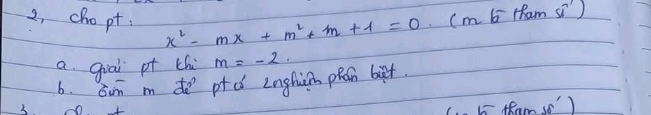 2, cho pt:
x² - mx + m² + m + 1 = 0. (m là tham số)
a. giải pt khi m = -2.
b. tìm m để pt có 2 nghiệm phân biệt.
3.
(m là tham số)